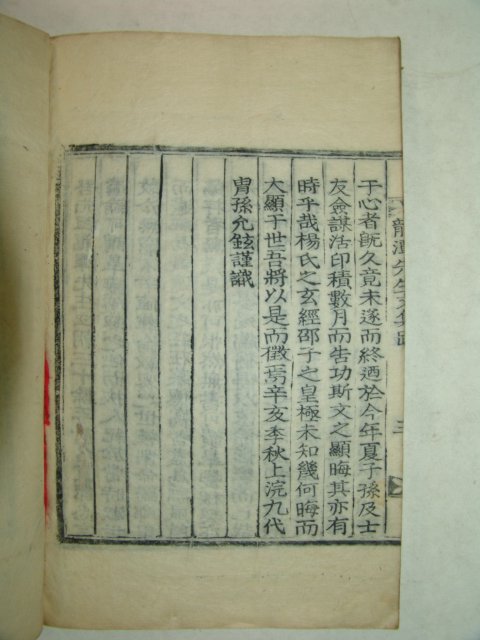 龍潭先生文集跋 三
于心者旣久竟未遂而終迺於今年夏子孫及士
友僉謀活印積數月而告功斯文之顯晦其亦有
時乎哉楊氏之玄經邵子之皇極未知幾何晦而
大顯于世吾將以是而徵焉辛亥季秋上浣九代
胄孫允鉉謹識